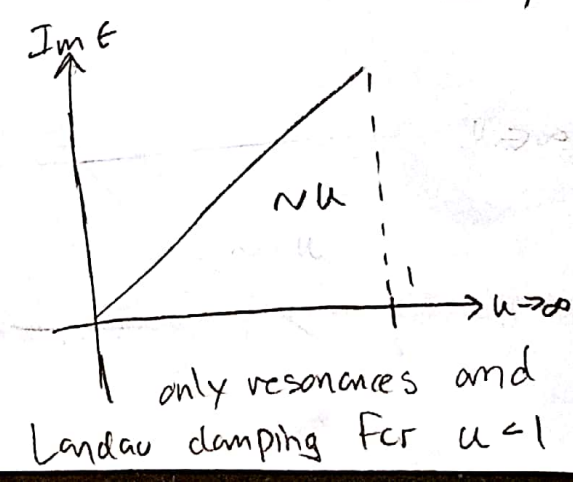 Im ϵ
~u
1
u→∞
only resonances and
Landau damping For u<1